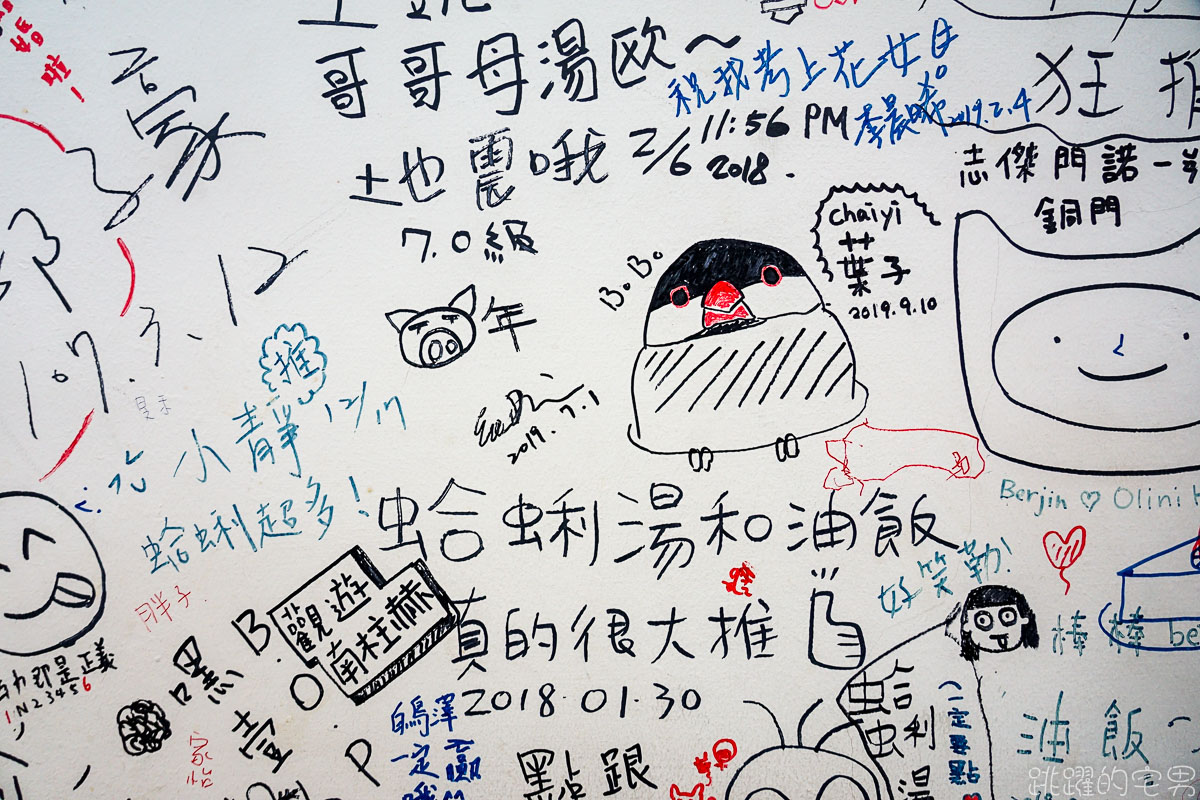 哥哥母湯欧~
祝我考上花女
2019.2.4
土地震哦 2/6 11:56 PM
2018.
7.0級
狂推
志傑門諾一
銅門
chaiyi
葉子
2019.9.10
BoBo
年
2019.7.1
107.3.12
推
小靜 12/17
蛤蜊超多!
蛤蜊湯和油飯
真的很大推
2018.01.30
Berjin ♡ Olini
好笑勒!
胖子
觀遊
南柱赫
B.
O
P
嘿
壹
家怡
即是正義
123456
鳥澤
一定贏
點跟
蛤蜊湯
一定要點
棒棒 be
油飯
跳躍的宅男